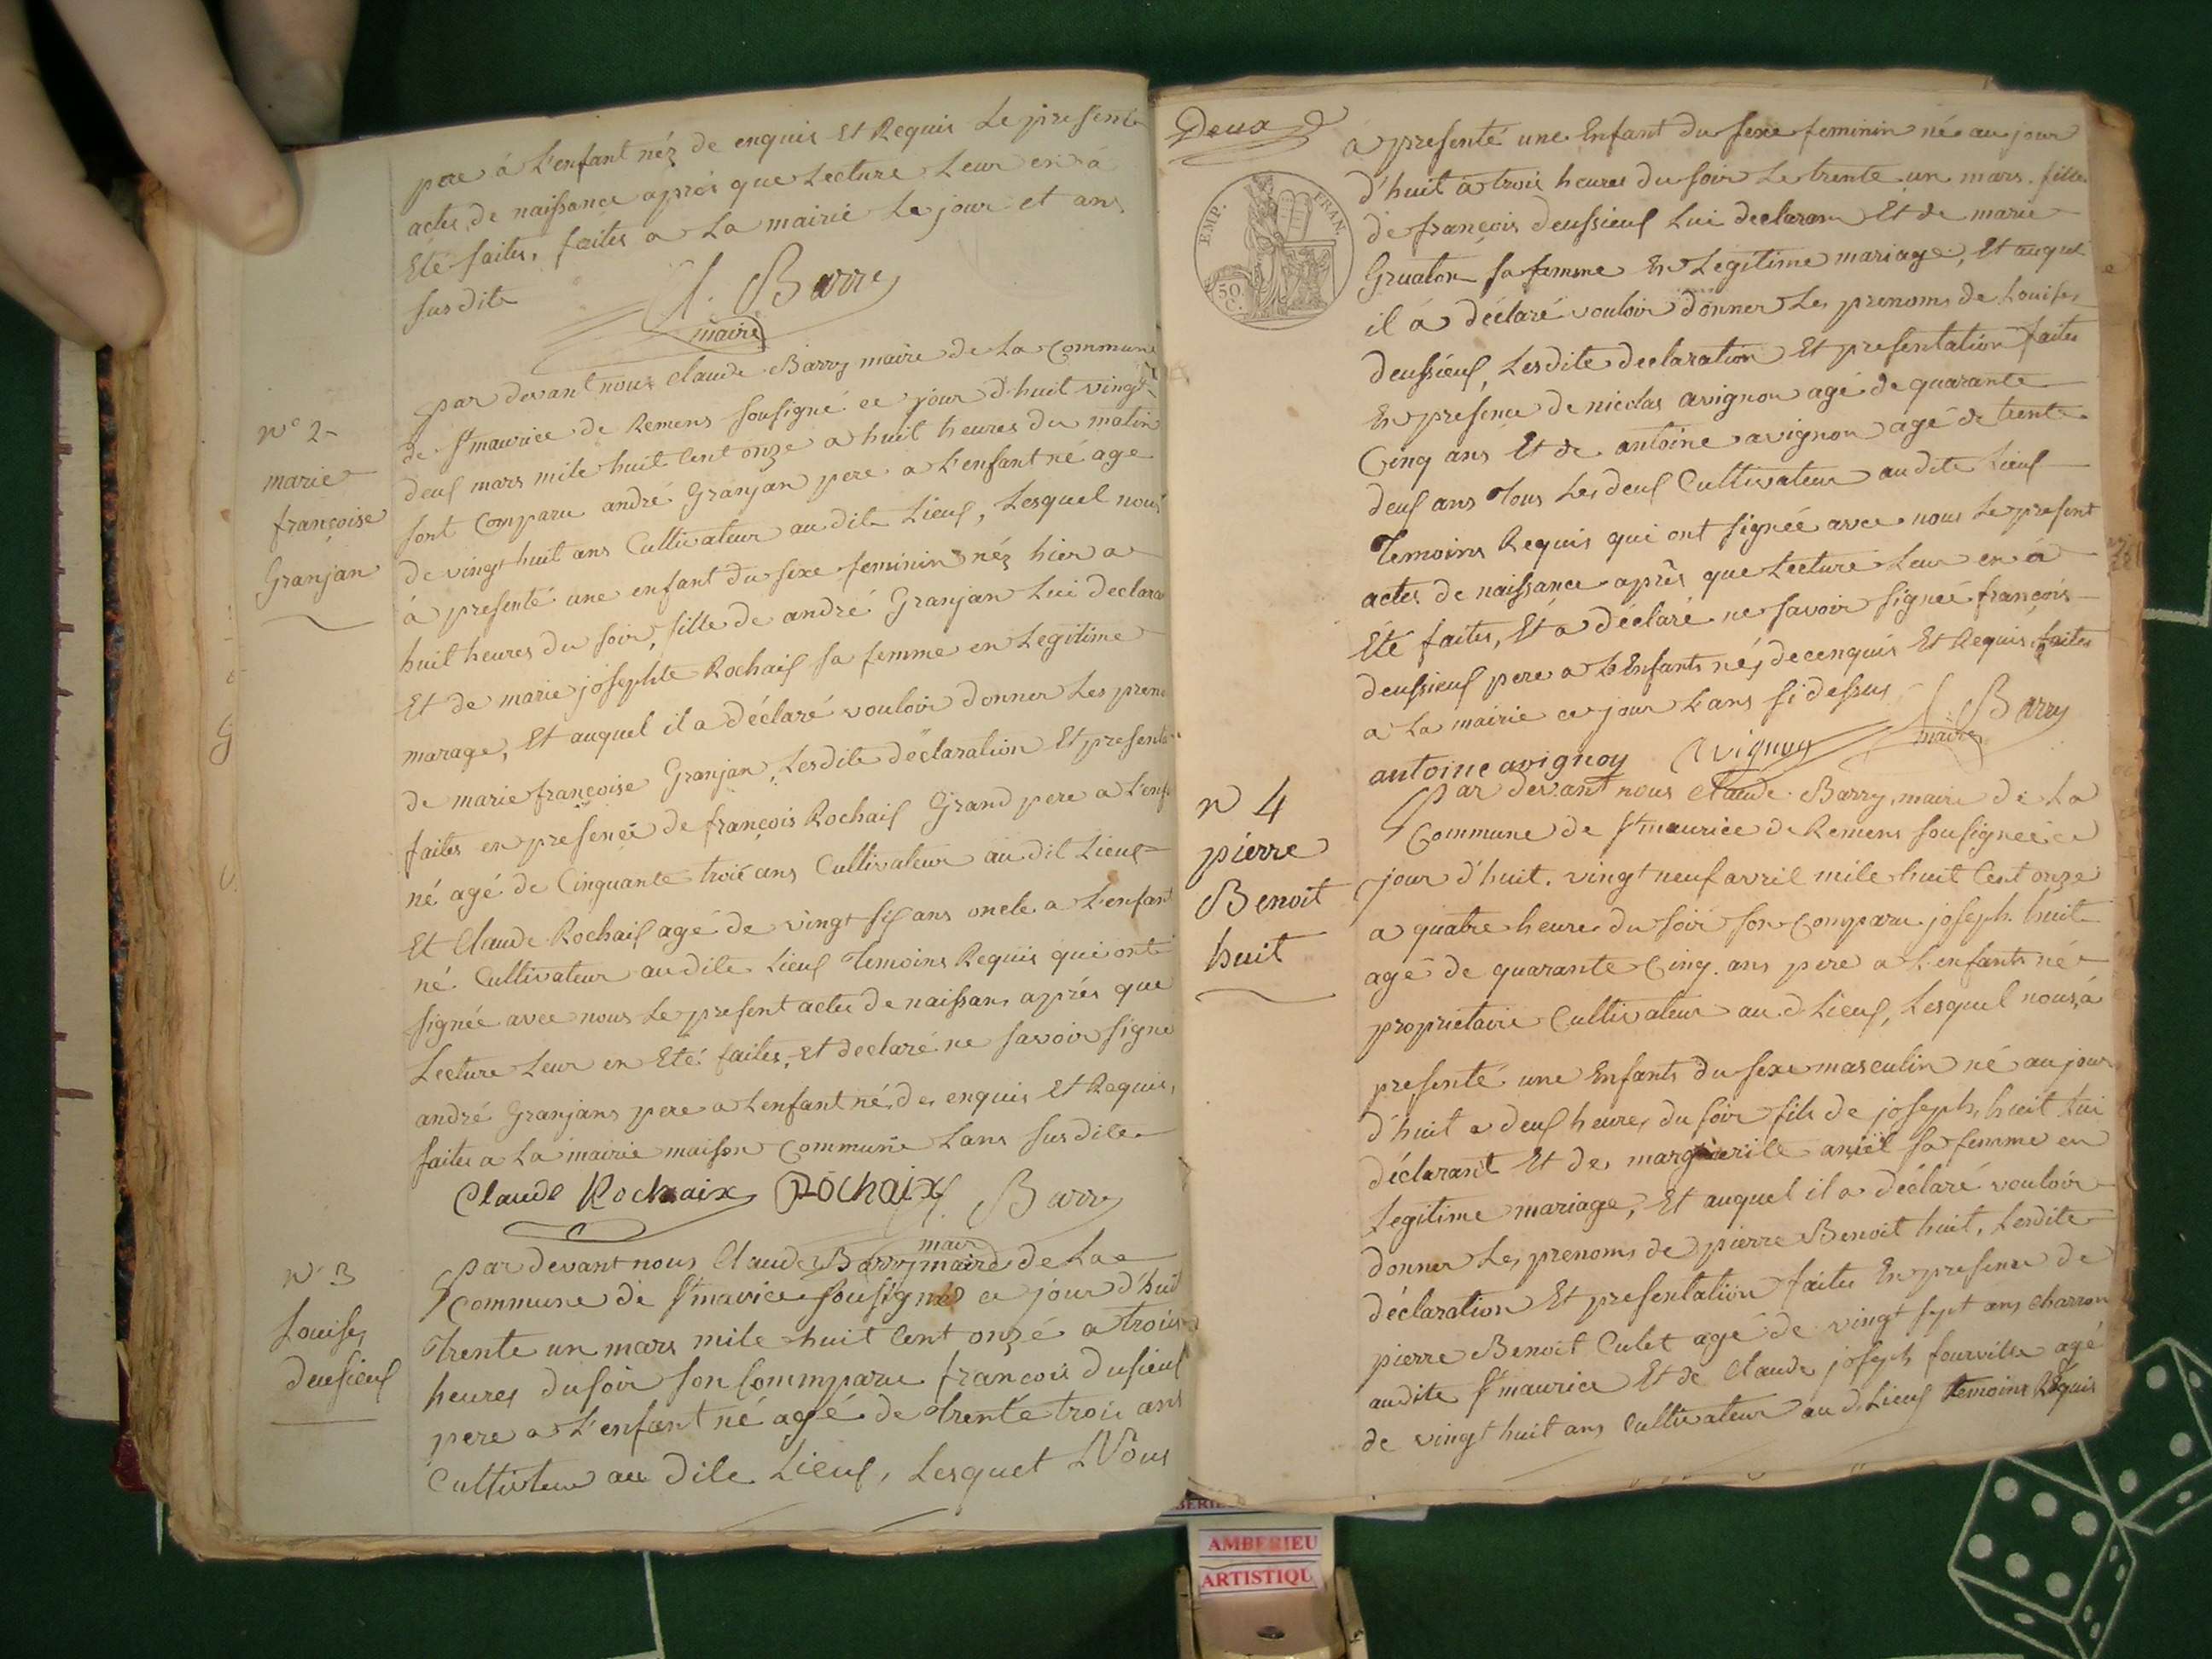 pere a L'enfant néz de enquis Et Requis Le presente
actes de naissance aprés que Lecture Leur en á
Eté faites, faites a La mairie Le jour et ans
susdite
C. Barry
maire
n° 2
marie
françoise
Granjan
par devant nous Claude Barry maire de La Commune
de St maurice de Remens sousigné ce jour d'huit vingt
deux mars mile huit Cent onze a huit heures du matin
sont Comparu andré Granjan pere a L'enfant né age
de vingt huit ans Cultivateur au dite Lieux, Lesquel nous
á presenté une enfant du sexe feminin néz hier a
huit heures du soir, fille de andré Granjan Lui declara
Et de marie josephte Rochaix sa femme en Legitime
marage, Et auquel il a déclaré vouloir donner Les pren
de marie françoise Granjan, Lesdite déclaration Et presenta
faites en presence de françois Rochaix Grand pere a L'enf
né agé de Cinquante trois ans Cultivateur au dit Lieux
Et Claude Rochaix agé de vingt six ans oncle a L'enfant
né Cultivateur au dite Lieux Temoins Requis qui ont
signée avec nous Le present actes de naissans aprés que
Lecture Leur en Eté faites, Et declaré ne savoir signé
andré Granjans pere a Lenfant né, de enquis Et Requis,
faites a La mairie maison Commune Lans susdite
Claude Rochaix Rochaix C. Barry
mair
n° 3
Louise
deusieux
Par devant nous Claude Barry maire de La
Commune de St mavice sousigné ce jour d'huit
Trente un mars mile huit Cent onze a trois
heures du soir son Commparu francois dusieux
pere a L'enfant né agé de trente trois ans
Cultivteur au dite Lieux, Lesquet Nous
Deux
EMP. FRAN.
50 C.
a presenté une Enfant du sexe feminin né au jour
d'huit á trois heures du soir Le trente un mars. fille
de françois deussieux Lui declaran Et de marie
Gruaton sa femme En Legitime mariage, Et auquel
il á déclaré vouloir donner Les prenoms de Louises
deussieux, Lesdite declaration Et presentation faites
En presence de nicolas avignon agé de quarante
Cinq ans Et de antoine avignon agé de trente
deux ans Tous Les deux Cultivateur au dite Lieux
Temoins Requis qui ont signée avec nous Le present
actes de naissance aprés que Lecture Leur en á
Eté faites, Et a déclaré ne savoir signée françois
deussieux pere a L'Enfants né, de cenquis Et Requis faites
a La mairie ce jour Lans si dessus
C. Barry
maire
antoine avignon Avignon
n 4
pierre
Benoit
huit
Par devant nous Claude Barry, maire de La
Commune de St maurice de Remens sousignée ce
jour d'huit. vingt neuf avril mile huit Cent onze
a quatre heure du soir son Comparu joseph huit
agé de quarante Cinq. ans pere a L'enfants né
proprietaire Cultivateur au d. Lieux, Lesquel nous á
presenté une Enfants du sexe masculin né au jour
d'huit a deux heures du soir fils de joseph huit Lui
déclarant Et de marguerite aniel sa femme en
Legitime mariage, Et auquel il a déclaré vouloir
donner Les prenoms de pierre Benoit huit, Lesdite
déclaration Et presentation faites En presence de
pierre Benoit Culet agé de vingt sept ans charron
au dite St maurice Et de Claude joseph fourville agé
de vingt huit ans Cultivateur au d. Lieux temoins Requis
AMBERIEU
ARTISTIQU